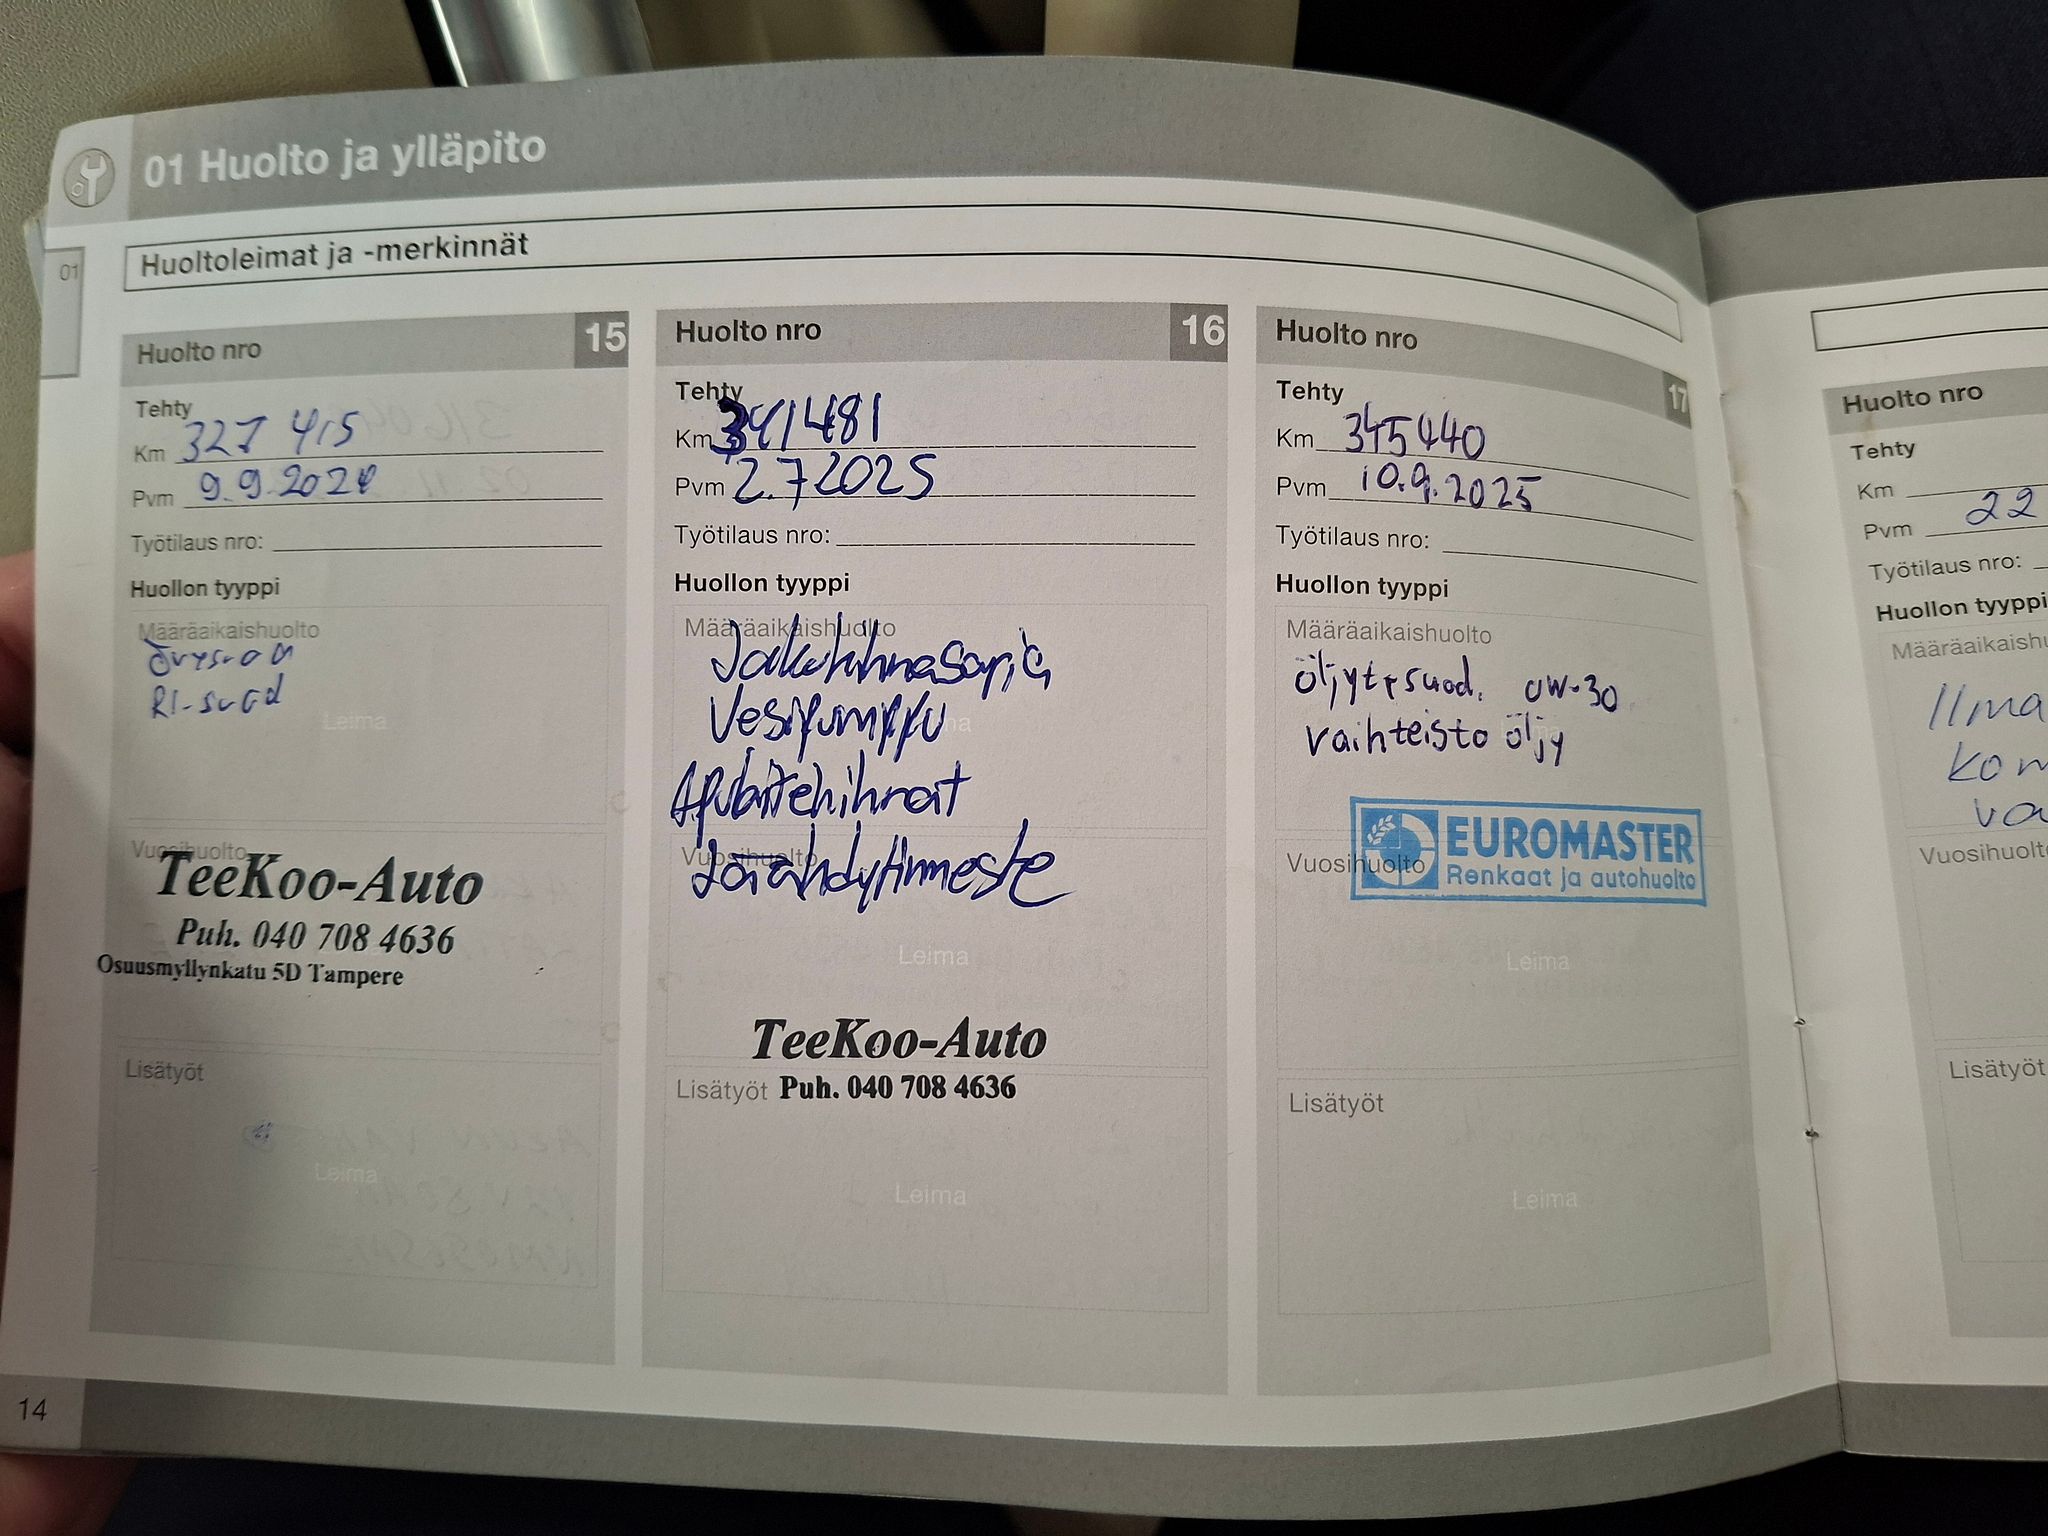 01 Huolto ja ylläpito
01
Huoltoleimat ja -merkinnät
Huolto nro 15
Tehty
Km 327 415
Pvm 9.9.2024
Työtilaus nro:
Huollon tyyppi
Määräaikaishuolto
RI-suod
Leima
Vuosihuolto
TeeKoo-Auto
Puh. 040 708 4636
Osuusmyllynkatu 5D Tampere
Lisätyöt
Leima
14
Huolto nro 16
Tehty
Km 341481
Pvm 2.7 2025
Työtilaus nro:
Huollon tyyppi
Määräaikaishuolto
Jakohihnasarja
Vesipumppu
Apulaitehihnat
Vuosihuolto
Jäähdytinneste
Leima
TeeKoo-Auto
Lisätyöt Puh. 040 708 4636
Leima
Huolto nro 17
Tehty
Km 345440
Pvm 10.9.2025
Työtilaus nro:
Huollon tyyppi
Määräaikaishuolto
öljyt+suod. 0W-30
vaihteisto öljy
EUROMASTER
Renkaat ja autohuolto
Vuosihuolto
Leima
Lisätyöt
Leima
Huolto nro
Tehty
Km
Pvm 22
Työtilaus nro:
Huollon tyyppi
Määräaikaishu
Ilma
Kom
va
Vuosihuolto
Lisätyöt